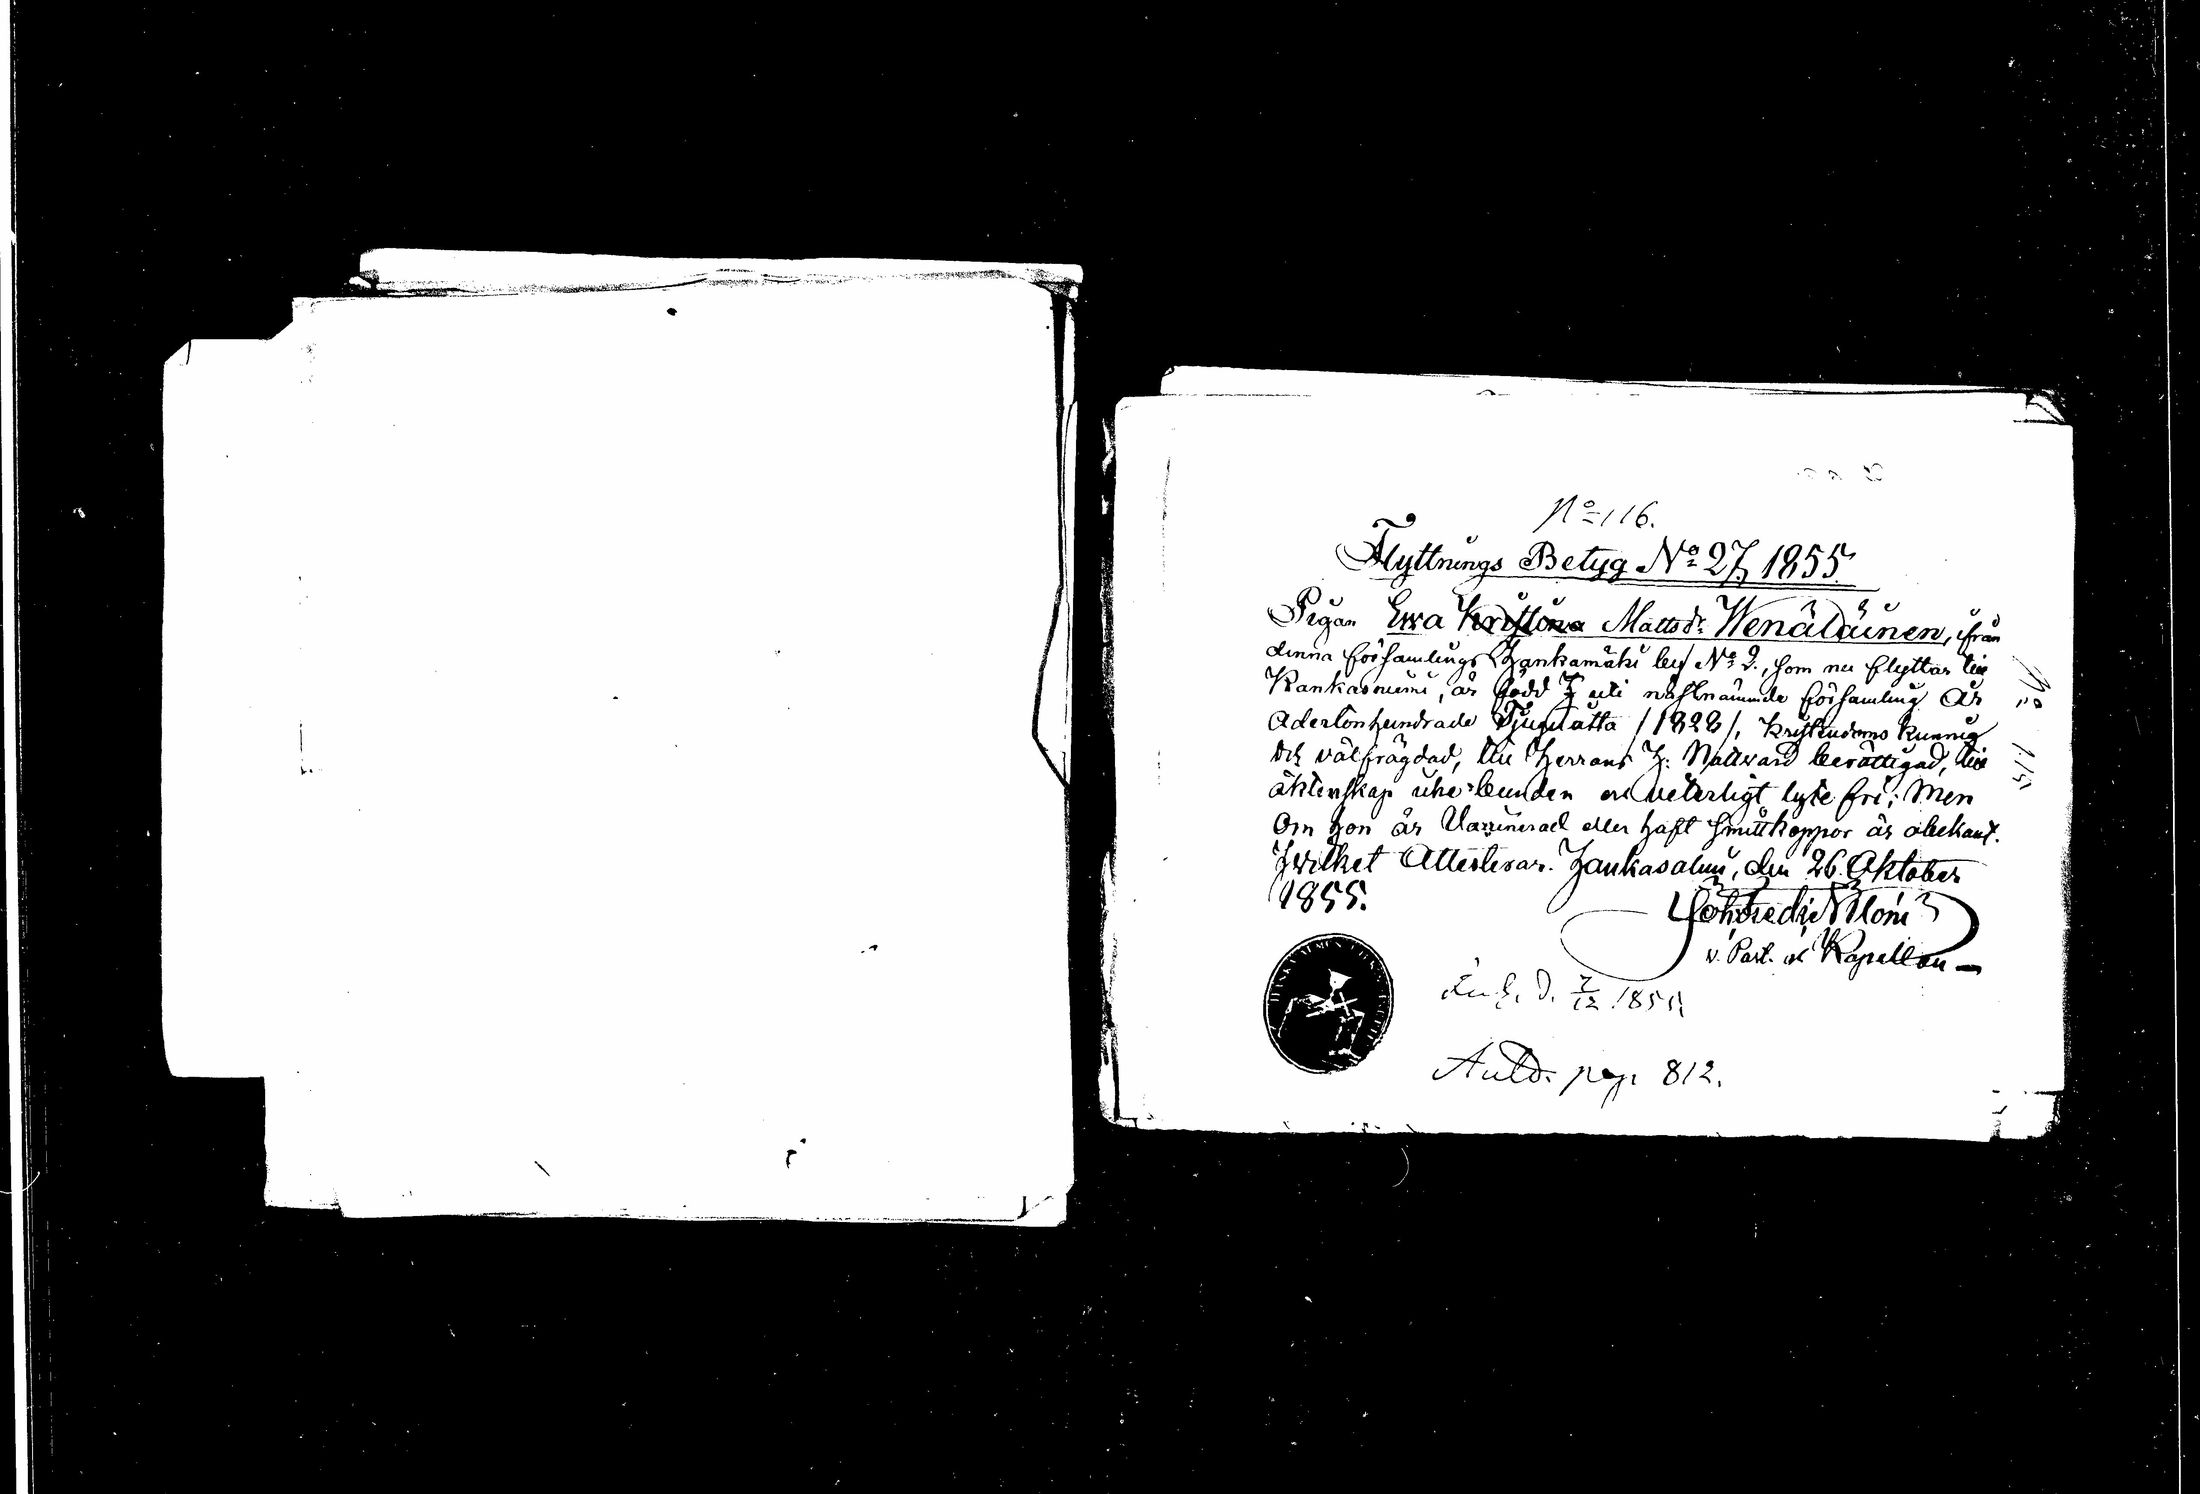 No 116.
Flyttnings Betyg No 27, 1855.
Pigan Ewa Kristina Mattsdr Wenäläinen, från
denna församlings Hankamäki by No 2., som nu flyttar till
Kankasniemi, är född uti nästnämnde församling År
Adertonhundrade Tjuguåtta /1828/, Kristendoms kunnig
och välfrägdad, till Herrans H. Nattvard berättigad, till
äktenskap icke bunden och veterligt lyte fri; Men
Om hon är Vaccinerad eller haft smittkoppor är obekant.
Hvilket Attesteras. Hankasalmi, den 26 Oktober
1855.
v. Past. och Kapellan
1855
pag. 812.